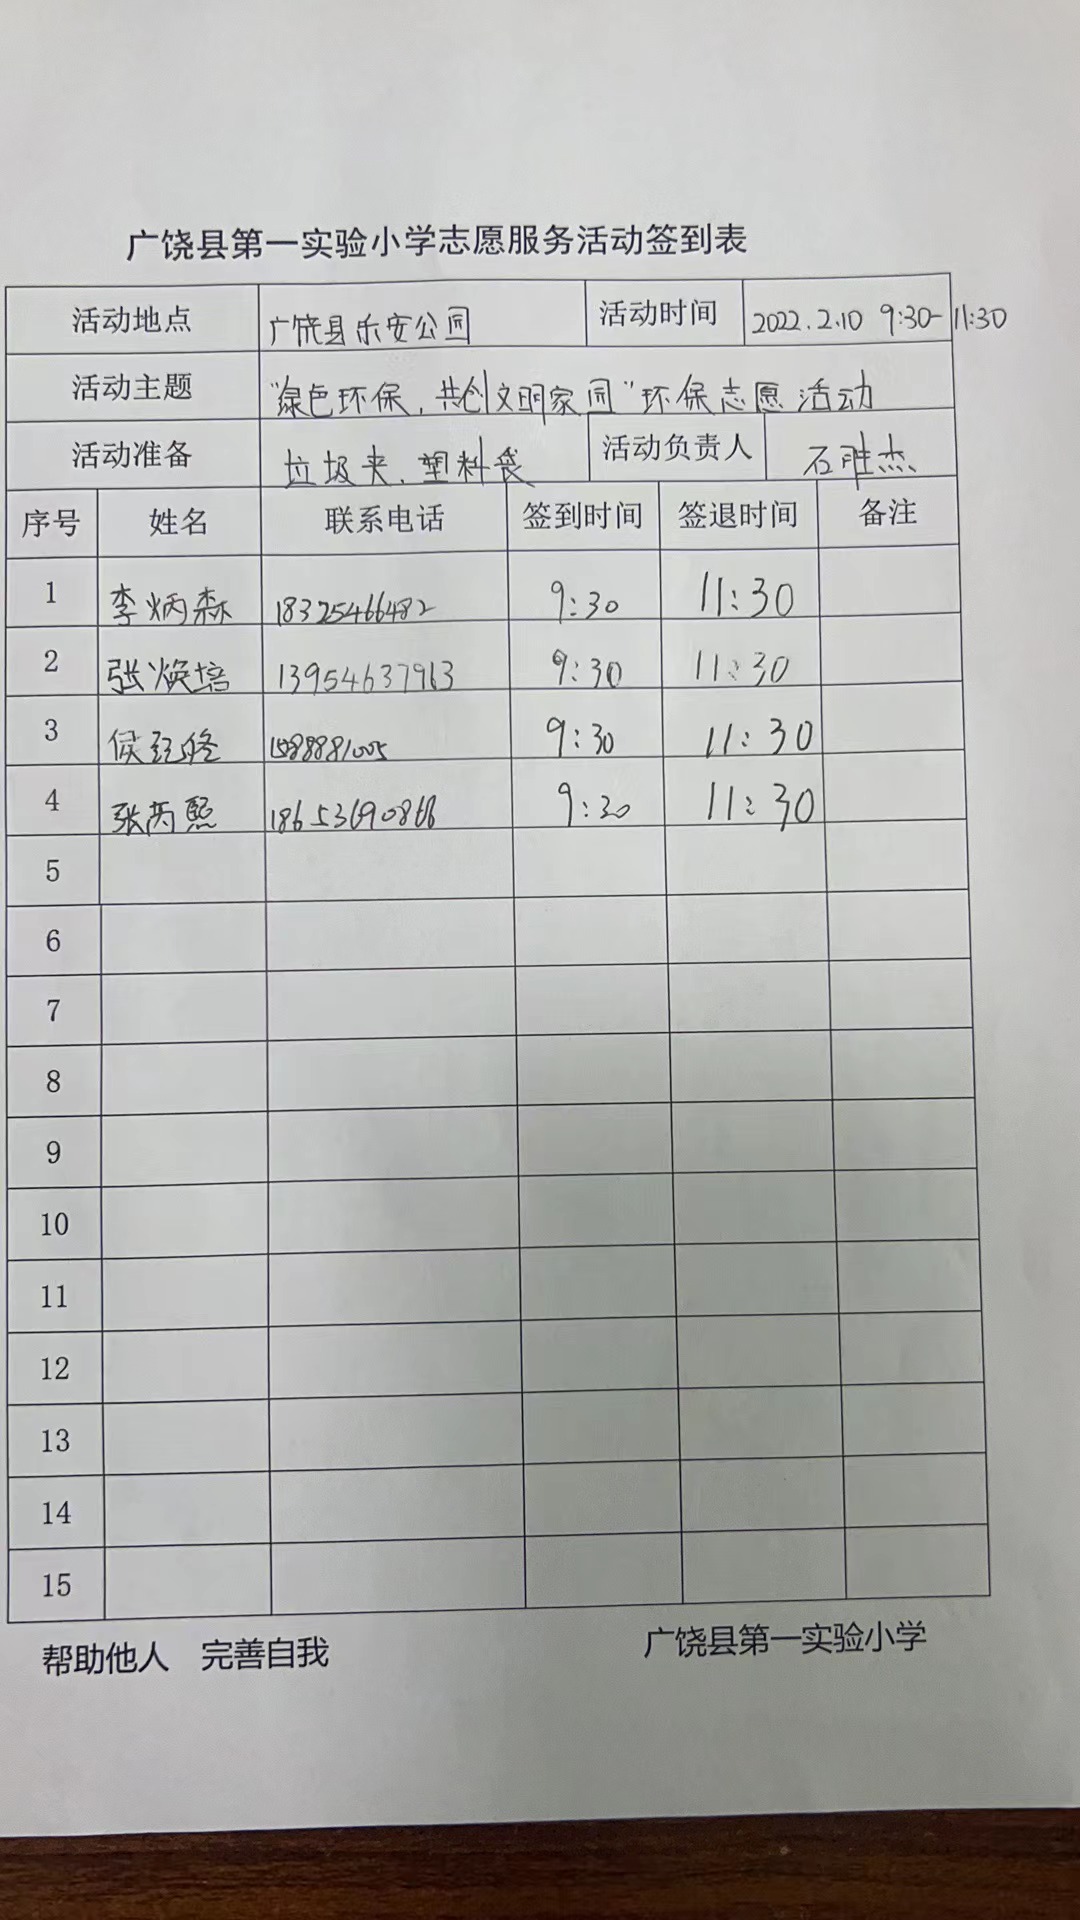 广饶县第一实验小学志愿服务活动签到表
活动地点 广饶县乐安公园 活动时间 2022.2.10 9:30-11:30
活动主题 “绿色环保,共创文明家园”环保志愿活动
活动准备 垃圾夹、塑料袋 活动负责人 石胜杰
序号 姓名 联系电话 签到时间 签退时间 备注
1 李炳森 18325466482 9:30 11:30
2 张焕培 13954637963 9:30 11:30
3 15888881005 9:30 11:30
4 张芮熙 18653690868 9:30 11:30
5
6
7
8
9
10
11
12
13
14
15
帮助他人 完善自我 广饶县第一实验小学